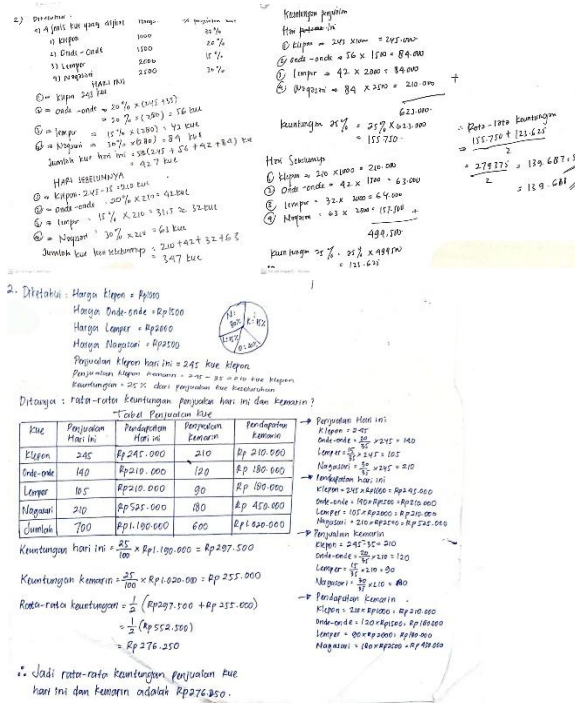 2) Diketahui :
a) 4 jenis kue yang dijual Harga % penjualan kue
1) Klepon 1000
2) Onde-Onde 1500 20%
3) Lemper 2000 15%
4) Nagasari 2500 30%
HARI INI
① = Klepon 245 kue
② = onde-onde = 20% × (245 + 35)
= 20% × (280) = 56 kue
③ = lemper = 15% × (280) = 42 kue
④ = Nagasari = 30% × (280) = 84 kue
Jumlah kue hari ini =
= 427 kue
HARI SEBELUMNYA
① = Klepon = 245 - 35 = 210 kue
② = onde-onde = 20% × 210 = 42 kue
③ = lemper = 15% × 210 = 31,5 ≈ 32 kue
④ = Nagasari = 30% × 210 = 63 kue
Jumlah kue hari sebelumnya = 210 + 42 + 32 + 63
= 347 kue
Keuntungan penjualan
Hari pertama ini
① Klepon = 245 × 1000 = 245.000
② onde-onde = 56 × 1500 = 84.000
③ lemper = 42 × 2000 = 84.000
④ Nagasari = 84 × 2500 = 210.000 +
623.000
keuntungan 25% = 25% × 623.000
= 155.750
Hari Sebelumnya
① Klepon = 210 × 1000 = 210.000
② Onde-onde = 42 × 1500 = 63.000
③ lemper = 32 × 2000 = 64.000
④ Nagasari = 63 × 2500 = 157.500 +
499.500
keuntungan 25% = 25% × 499500
= 123.625
= Rata-rata keuntungan
= 155.750 + 123.625
2
= 279375 = 139.687,5
2
= 139.688
2. Diketahui : Harga Klepon = Rp1000
Harga Onde-onde = Rp1500
Harga Lemper = Rp2000
Harga Nagasari = Rp2500
Penjualan Klepon hari ini = 245 kue klepon
Penjualan Klepon kemarin = 245 - 35 = 210 kue klepon
Keuntungan = 25% dari penjualan kue keseluruhan
N: 30% K: 35%
L: 15% O: 20%
Ditanya : rata-rata keuntungan penjualan hari ini dan kemarin ?
Tabel Penjualan Kue
Kue Penjualan Hari ini Pendapatan Hari ini Penjualan kemarin Pendapatan kemarin
Klepon 245 Rp245.000 210 Rp 210.000
Onde-onde 140 Rp210.000 120 Rp 180.000
Lemper 105 Rp210.000 90 Rp 180.000
Nagasari 210 Rp525.000 180 Rp 450.000
Jumlah 700 Rp1.190.000 600 Rp1.020.000
Keuntungan hari ini = 25/100 × Rp1.190.000 = Rp297.500
Keuntungan kemarin = 25/100 × Rp1.020.000 = Rp 255.000
Rata-rata keuntungan = 1/2 (Rp297.500 + Rp 255.000)
= 1/2 (Rp 552.500)
= Rp 276.250
∴ Jadi rata-rata keuntungan penjualan kue
hari ini dan kemarin adalah Rp276.250.
→ Penjualan Hari ini
Klepon = 245
Onde-onde = 20/35 × 245 = 140
Lemper = 15/35 × 245 = 105
Nagasari = 30/35 × 245 = 210
→ Pendapatan hari ini
Klepon = 245 × Rp1000 = Rp245.000
Onde-onde = 140 × Rp1500 = Rp210.000
Lemper = 105 × Rp2000 = Rp210.000
Nagasari = 210 × Rp2500 = Rp 525.000
→ Penjualan Kemarin
Klepon = 245 - 35 = 210
Onde-onde = 20/35 × 210 = 120
Lemper = 15/35 × 210 = 90
Nagasari = 30/35 × 210 = 180
→ Pendapatan Kemarin
Klepon = 210 × Rp1000 = Rp 210.000
Onde-onde = 120 × Rp1500 = Rp 180.000
Lemper = 90 × Rp2000 = Rp 180.000
Nagasari = 180 × Rp2500 = Rp 450.000